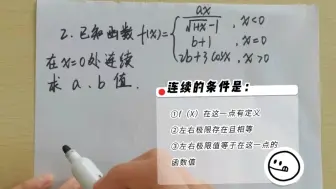 2.已知函数 f(x)={ ax/(√(1+x)-1) , x<0
b+1 , x=0
2b+3cosx, x>0
在x=0处连续
求 a、b 值.
连续的条件是:
①f（X）在这一点有定义
②左右极限存在且相等
③左右极限值等于在这一点的函数值